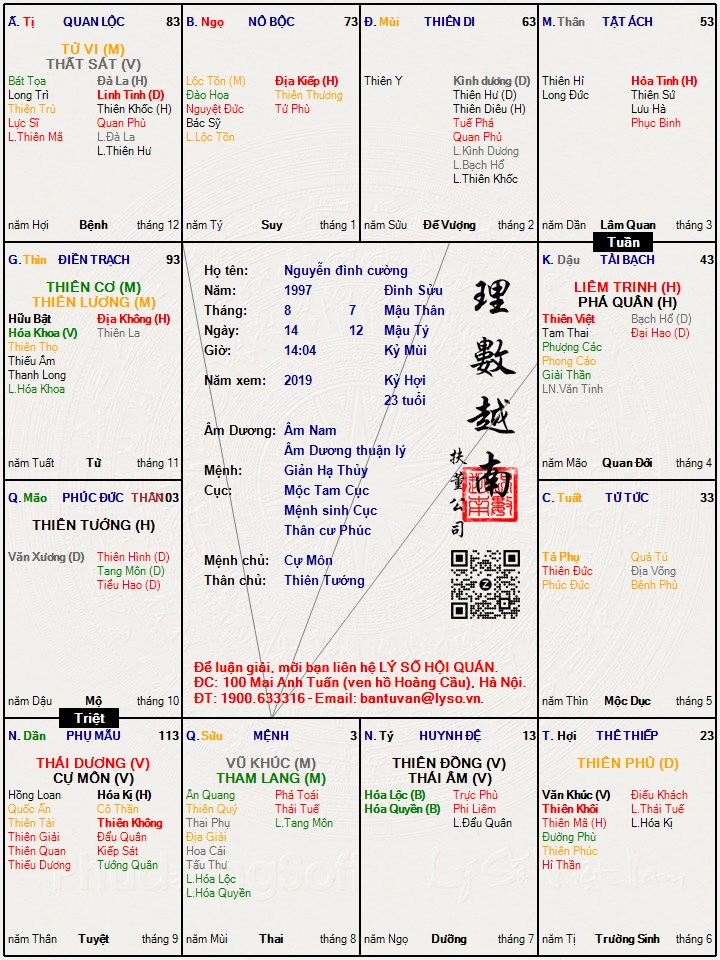 Ấ. Tị QUAN LỘC 83
TỬ VI (M)
THẤT SÁT (V)
Bát Tọa Đà La (H)
Long Trì Linh Tinh (D)
Thiên Trù Thiên Khốc (H)
Lực Sĩ Quan Phù
L.Thiên Mã L.Đà La
L.Thiên Hư
năm Hợi Bệnh tháng 12
B. Ngọ NÔ BỘC 73
Lộc Tồn (M) Địa Kiếp (H)
Đào Hoa Thiên Thương
Nguyệt Đức Tử Phù
Bác Sỹ
L.Lộc Tồn
năm Tý Suy tháng 1
Đ. Mùi THIÊN DI 63
Thiên Y Kình dương (D)
Thiên Hư (D)
Thiên Diêu (H)
Tuế Phá
Quan Phủ
L.Kình Dương
L.Bạch Hổ
L.Thiên Khốc
năm Sửu Đế Vượng tháng 2
M. Thân TẬT ÁCH 53
Thiên Hỉ Hỏa Tinh (H)
Long Đức Thiên Sứ
Lưu Hà
Phục Binh
năm Dần Lâm Quan tháng 3
Tuần
G. Thìn ĐIỀN TRẠCH 93
THIÊN CƠ (M)
THIÊN LƯƠNG (M)
Hữu Bật Địa Không (H)
Hóa Khoa (V) Thiên La
Thiên Thọ
Thiếu Âm
Thanh Long
L.Hóa Khoa
năm Tuất Tử tháng 11
Họ tên: Nguyễn đình cường
Năm: 1997 Đinh Sửu
Tháng: 8 7 Mậu Thân
Ngày: 14 12 Mậu Tý
Giờ: 14:04 Kỷ Mùi
Năm xem: 2019 Kỷ Hợi
23 tuổi
Âm Dương: Âm Nam
Âm Dương thuận lý
Mệnh: Giản Hạ Thủy
Cục: Mộc Tam Cục
Mệnh sinh Cục
Thân cư Phúc
Mệnh chủ: Cự Môn
Thân chủ: Thiên Tướng
理數越南
扶董公司
Để luận giải, mời bạn liên hệ LÝ SỐ HỘI QUÁN.
ĐC: 100 Mai Anh Tuấn (ven hồ Hoàng Cầu), Hà Nội.
ĐT: 1900.633316 - Email: bantuvan@lyso.vn.
K. Dậu TÀI BẠCH 43
LIÊM TRINH (H)
PHÁ QUÂN (H)
Thiên Việt Bạch Hổ (D)
Tam Thai Đại Hao (D)
Phượng Các
Phong Cáo
Giải Thần
LN.Văn Tinh
năm Mão Quan Đới tháng 4
Q. Mão PHÚC ĐỨC THÂN 103
THIÊN TƯỚNG (H)
Văn Xương (D) Thiên Hình (D)
Tang Môn (D)
Tiểu Hao (D)
năm Dậu Mộ tháng 10
Triệt
C. Tuất TỬ TỨC 33
Tả Phụ Quả Tú
Thiên Đức Địa Võng
Phúc Đức Bệnh Phù
năm Thìn Mộc Dục tháng 5
N. Dần PHỤ MẪU 113
THÁI DƯƠNG (V)
CỰ MÔN (V)
Hồng Loan Hóa Kị (H)
Quốc Ấn Cô Thần
Thiên Tài Thiên Không
Thiên Giải Đẩu Quân
Thiên Quan Kiếp Sát
Thiếu Dương Tướng Quân
năm Thân Tuyệt tháng 9
Q. Sửu MỆNH 3
VŨ KHÚC (M)
THAM LANG (M)
Ân Quang Phá Toái
Thiên Quý Thái Tuế
Thai Phụ L.Tang Môn
Địa Giải
Hoa Cái
Tấu Thư
L.Hóa Lộc
L.Hóa Quyền
năm Mùi Thai tháng 8
N. Tý HUYNH ĐỆ 13
THIÊN ĐỒNG (V)
THÁI ÂM (V)
Hóa Lộc (B) Trực Phù
Hóa Quyền (B) Phi Liêm
L.Đẩu Quân
năm Ngọ Dưỡng tháng 7
T. Hợi THÊ THIẾP 23
THIÊN PHỦ (D)
Văn Khúc (V) Điếu Khách
Thiên Khôi L.Thái Tuế
Thiên Mã (H) L.Hóa Kị
Đường Phù
Thiên Phúc
Hỉ Thần
năm Tị Trường Sinh tháng 6